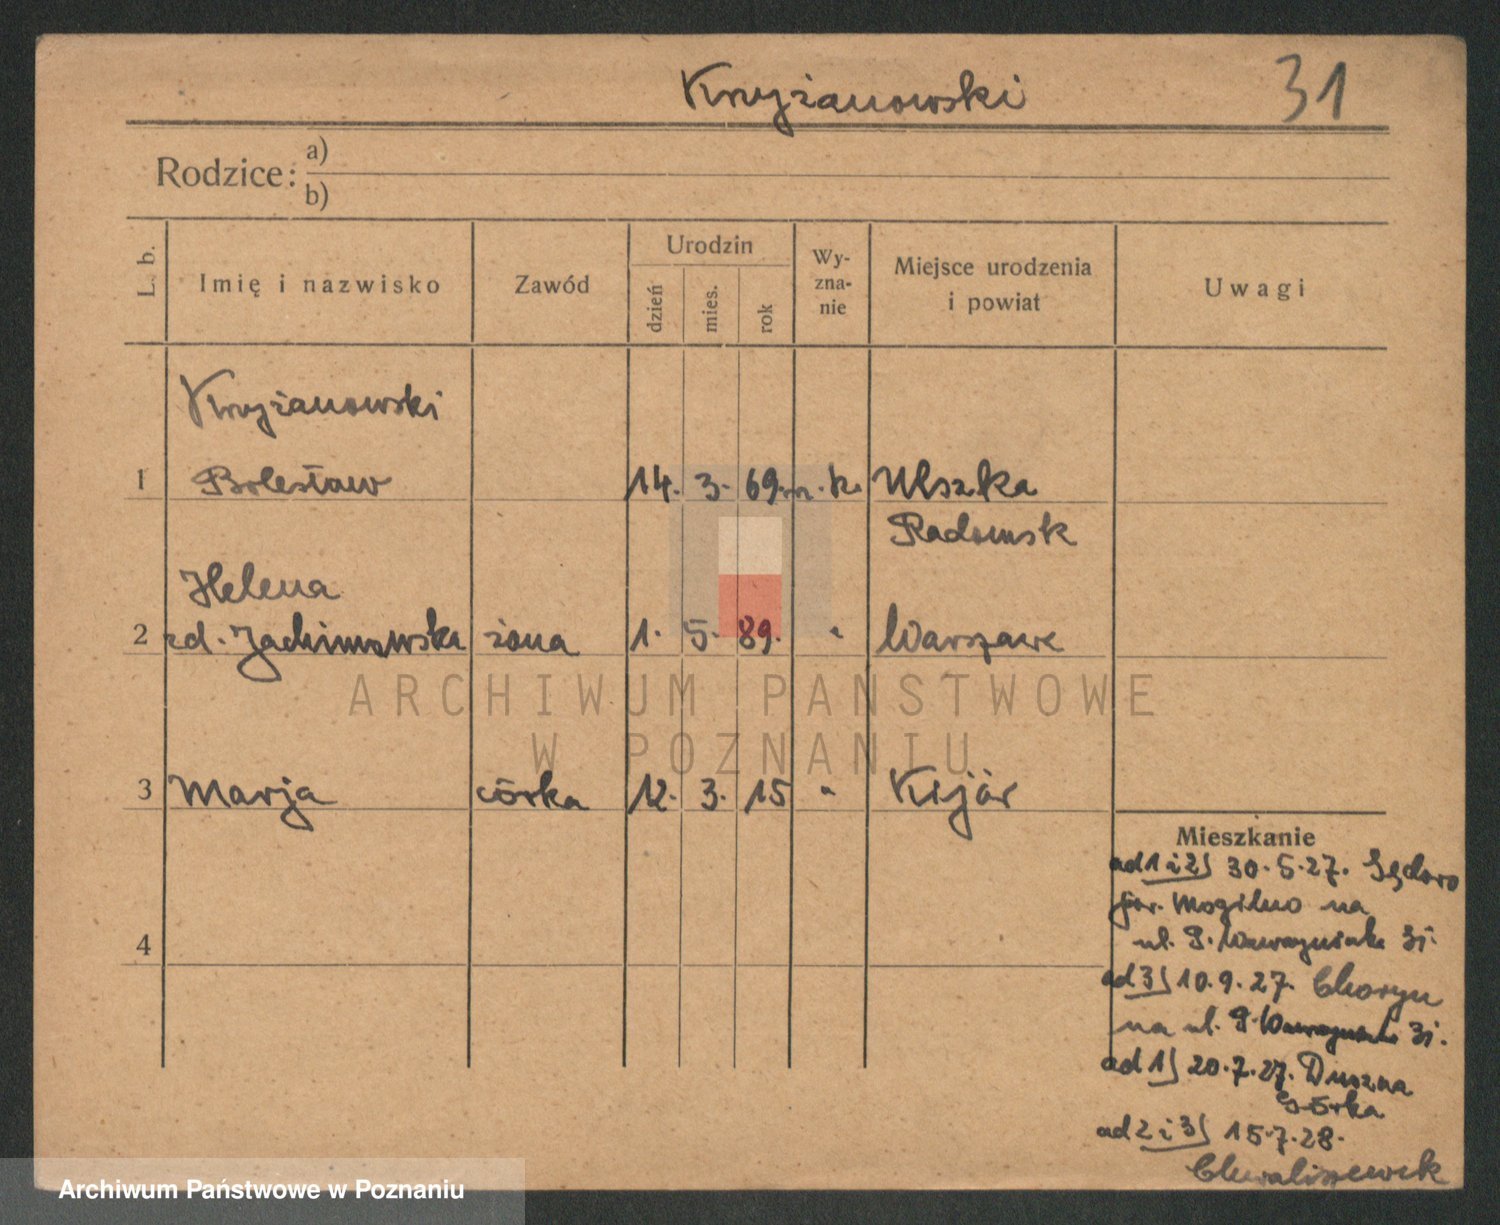 Krzyżanowski
31
Rodzice: a)
b)
L. b.
Imię i nazwisko
Zawód
Urodzin
dzień
mies.
rok
Wy-
zna-
nie
Miejsce urodzenia
i powiat
Uwagi
Krzyżanowski
1 Bolesław 14. 3. 69. r. k.
Radomsk
Helena
2 zd. Jachimowska żona 1. 5. 89. " Warszawa
3 Marja córka 12. 3. 15 " Kijów
Mieszkanie
ad 1 i 2) 30.5.27.
pow. Mogilno na
ul. P. Wawrzyniaka
4
ad 3) 10.9.27. Choryń
na ul. P. Wawrzyniaka
ad 1) 20.7.27.
Górka
ad 2 i 3) 15.7.28.
Chwaliszewek
ARCHIWUM PAŃSTWOWE
W POZNANIU
Archiwum Państwowe w Poznaniu